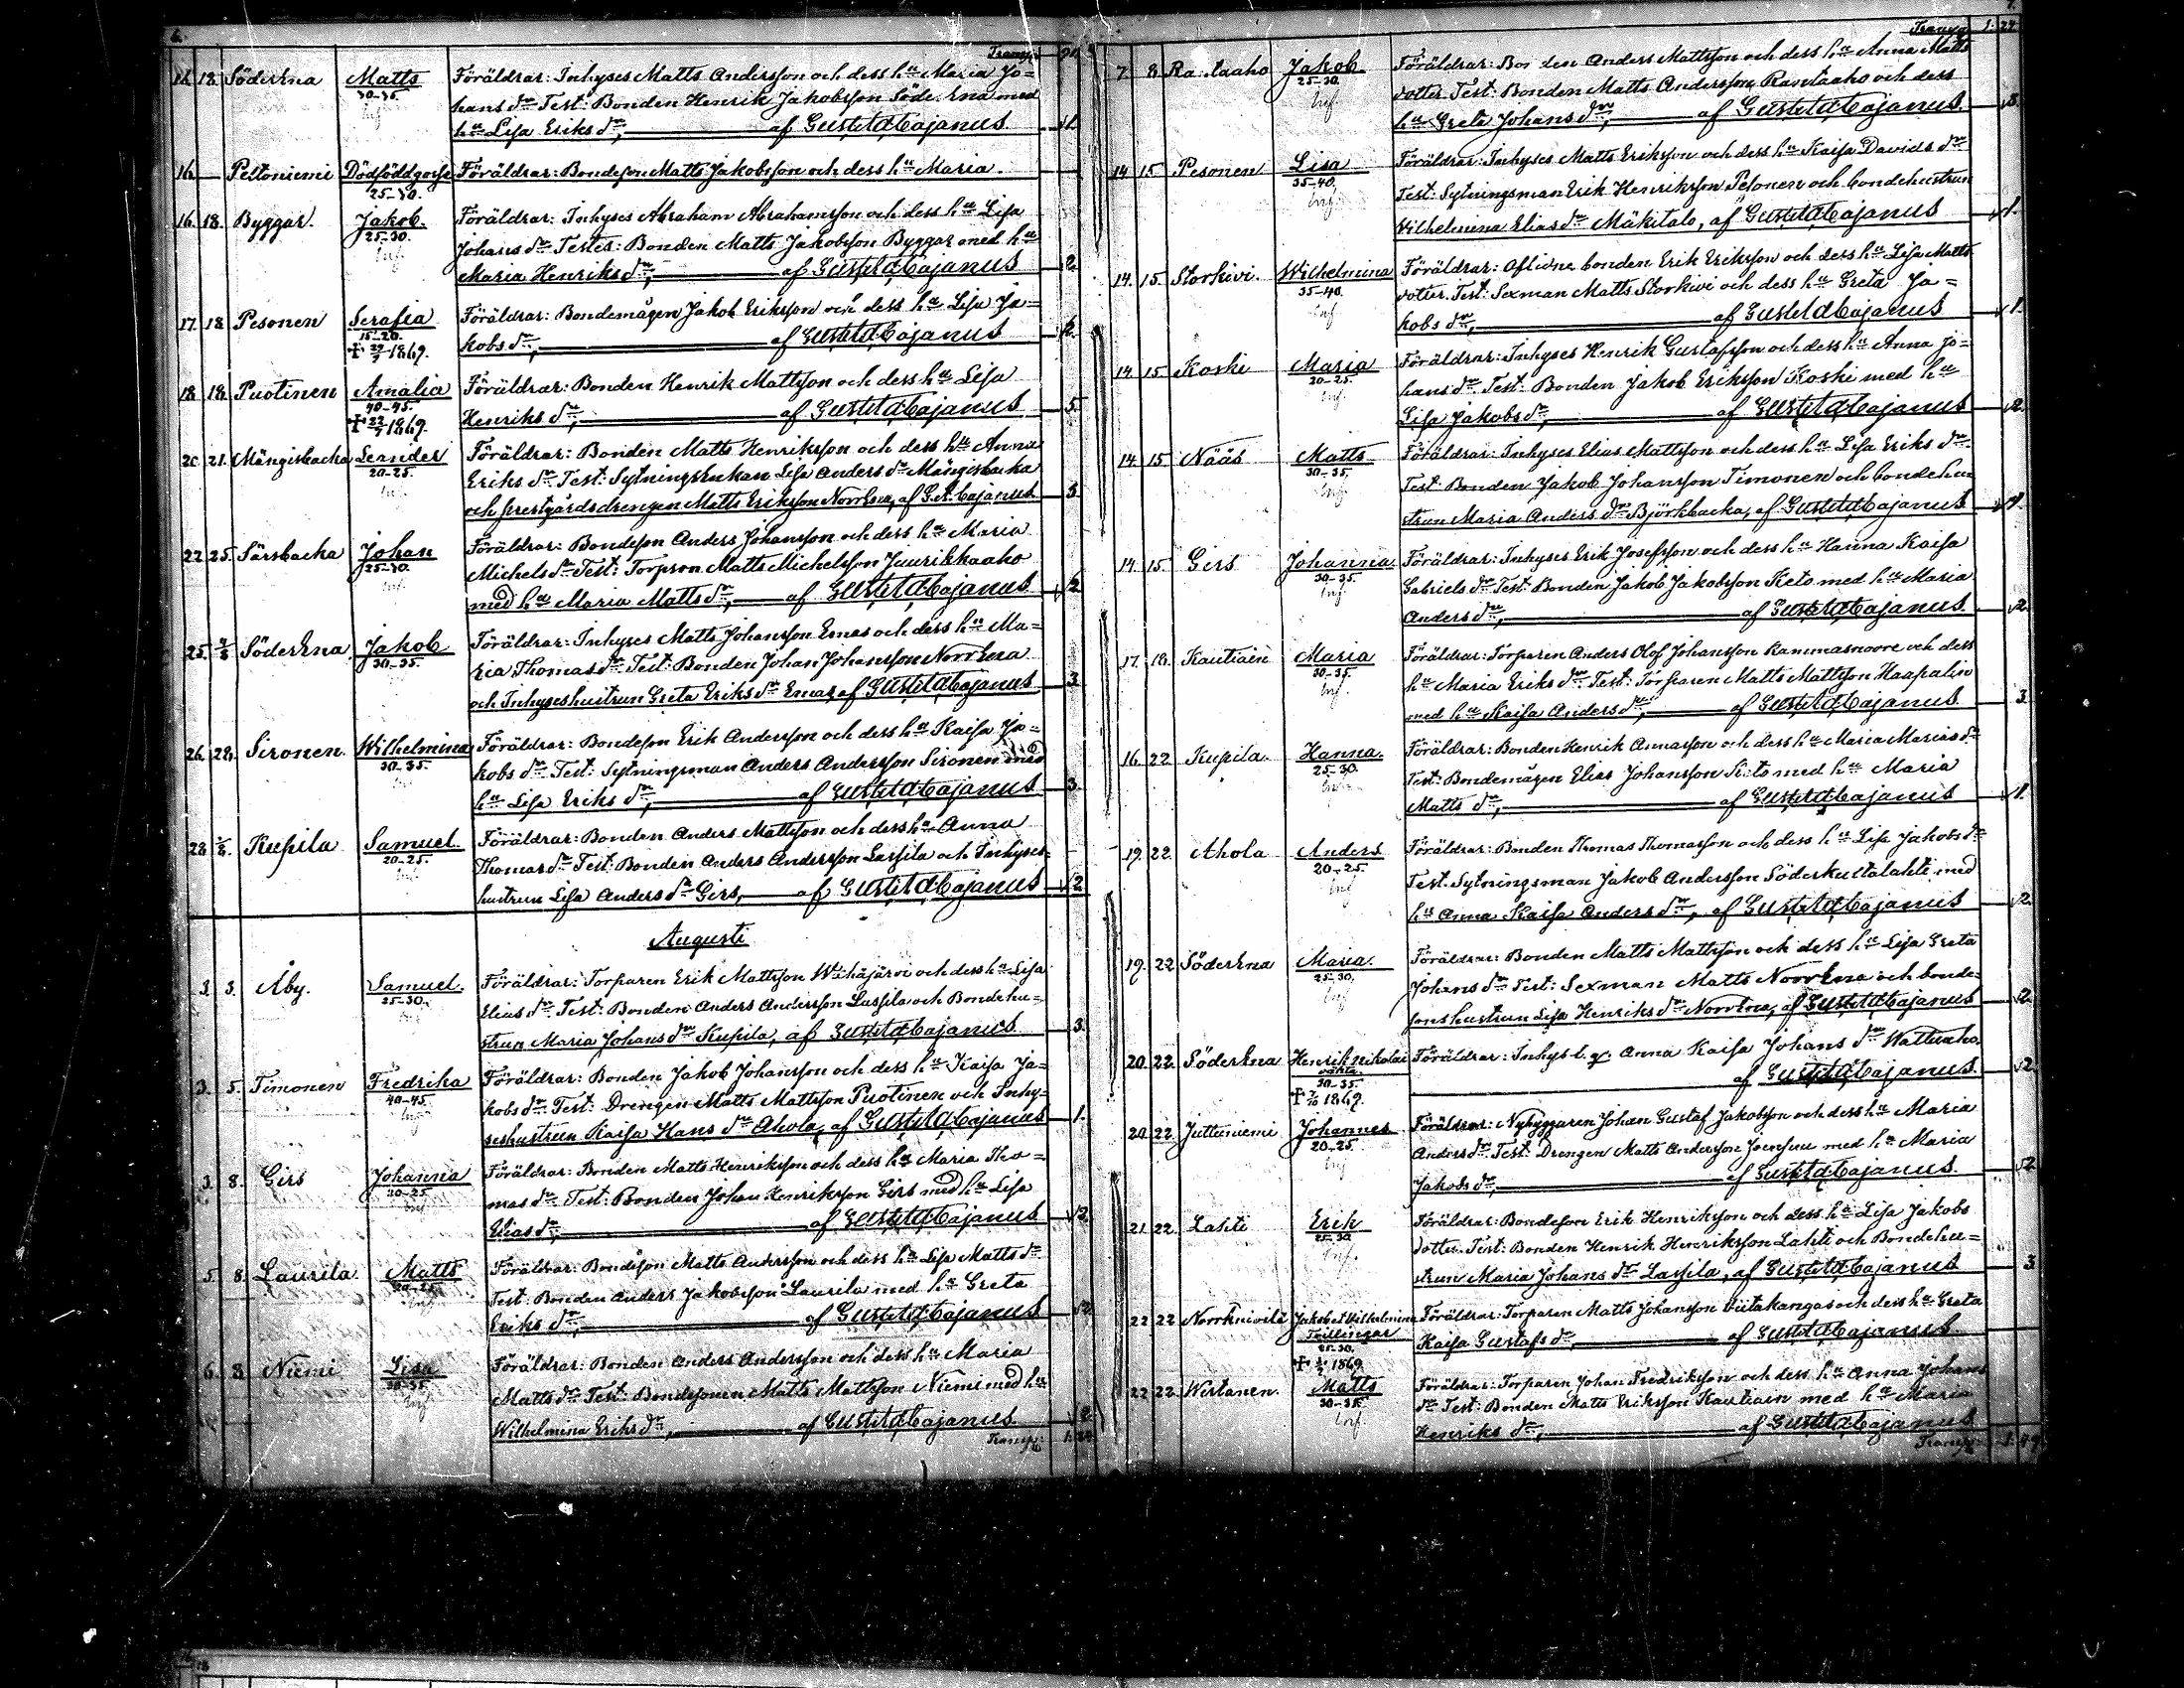 6.
Transp:
16. 18. Söderena Matts Föräldrar: Inhyses Matts Andersson och dess hu Maria Jo=
30-35. hans dr. Test: Bonden Henrik Jakobsson Söderena med
Inf. hu Lisa Eriks dr, af Gust. Ad. Cajanus 1.
16. — Peltoniemi Dödfödd gosse Föräldrar: Bondeson Matts Jakobsson och dess hu Maria.
25-30.
16. 18. Byggar. Jakob. Föräldrar: Inhyses Abraham Abrahamsson och dess hu Lisa
25-30. Johans dr. Testes: Bonden Matts Jakobsson Byggar med hu
Inf. Maria Henriks dr, af Gust. Ad. Cajanus 2
17. 18. Pesonen Serafia Föräldrar: Bondemågen Jakob Eriksson och dess hu Lisa Ja=
15-20. kobs dr, af Gust. Ad. Cajanus 2.
1869.
18 18. Puotinen Amalia Föräldrar: Bonden Henrik Mattsson och dess hu Lisa
40-45. Henriks dr, af Gust. Ad. Cajanus 5.
1869.
20. 21. Mängisbacka Leander Föräldrar: Bonden Matts Henriksson och dess hu Anna
20-25. Eriks dr. Test: Sytningsenkan Lisa Anders dr Mängisbacka
Inf. och prestgårdsdrengen Matts Eriksson Norrena, af G. A. Cajanus 3
22. 25. Särsbacka Johan Föräldrar: Bondeson Anders Johansson och dess hu Maria
25-30. Michels dr. Test: Torpson Matts Michelsson Juurikkaaho
Inf. med hu Maria Matts dr, af Gust. Ad. Cajanus 2.
25. Söderena Jakob Föräldrar: Inhyses Matts Johansson Emas och dess hu Ma=
30-35. ria Thomas dr. Test: Bonden Johan Johansson Norrena
och Inhyseshustrun Greta Eriks dr Emas, af Gust. Ad. Cajanus 3.
26. 28. Sironen. Wilhelmina Föräldrar: Bondeson Erik Andersson och dess hu Kaisa Ja=
30-35. kobs dr. Test: Sytningsman Anders Andersson Sironen med
hu Lisa Eriks dr, af Gust. Ad. Cajanus 3.
28. Kupila Samuel. Föräldrar: Bonden Anders Mattsson och dess hu Anna
20-25. Thomas dr. Test: Bonden Anders Andersson Lassila och Inhyses=
Inf. hustrun Lisa Anders dr Girs, af Gust. Ad. Cajanus 2.
Augusti
3. 3. Åby. Samuel. Föräldrar: Torparen Erik Mattsson Wähäjärvi och dess hu Lisa
25-30. Elias dr. Test: Bonden Anders Andersson Lassila och Bondehu=
strun Maria Johans dr Kupila, af Gust. Ad. Cajanus 3.
3. 5. Timonen Fredrika Föräldrar: Bonden Jakob Johansson och dess hu Kaisa Ja=
40-45. kobs dr. Test: Drengen Matts Mattsson Puotinen och Inhy=
Inf. seshustrun Kaisa Hans dr Ahola, af Gust. Ad. Cajanus 1.
3. 8. Girs Johanna Föräldrar: Bonden Matts Henriksson och dess hu Maria Tho=
20-25. mas dr. Test: Bonden Johan Henriksson Girs med hu Lisa
Inf. Elias dr, af Gust. Ad. Cajanus 2.
5. 8. Laurila. Matts Föräldrar: Bondeson Matts Andersson och dess hu Lisa Matts dr.
Test: Bonden Anders Jakobsson Laurila med hu Greta
Eriks dr, af Gust. Ad. Cajanus 2.
6. 8 Niemi Lisa Föräldrar: Bonden Anders Andersson och dess hu Maria
30-35. Matts dr. Test: Bondesonen Matts Mattsson Niemi med hu
Inf. Wilhelmina Eriks dr, af Gust. Ad. Cajanus 2.
Transp:
7.
Transp: 1. 24.
7. 8 Jakob Föräldrar: Bonden Anders Mattsson och dess hu Anna Matts
25-30. dotter. Test: Bonden Matts Andersson Rautaaho och dess
Inf. hu Greta Johans dr, af Gust. Ad. Cajanus. 3.
14 15 Pesonen Lisa Föräldrar: Inhyses Matts Eriksson och dess hu Kaisa Davids dr.
35-40. Test: Sytningsman Erik Henriksson Pesonen och bondehustrun
Inf. Wilhelmina Elias dr Mäkitalo, af Gust. Ad. Cajanus 1.
14. 15. Storkivi. Wilhelmina Föräldrar: Aflidne bonden Erik Eriksson och dess hu Lisa Matts
35-40. dotter. Test: Sexman Matts Storkivi och dess hu Greta Ja=
Inf. kobs dr, af Gust. Ad. Cajanus 1.
14 15 Koski Maria Föräldrar: Inhyses Henrik Gustafsson och dess hu Anna Jo=
20-25. hans dr. Test: Bonden Jakob Eriksson Koski med hu
Inf. Lisa Jakobs dr, af Gust. Ad. Cajanus 2.
14 15 Nääs Matts Föräldrar: Inhyses Elias Mattsson och dess hu Lisa Eriks dr.
30-35. Test: Bonden Jakob Johansson Timonen och bondehu=
Inf. strun Maria Anders dr Björkbacka, af Gust. Ad. Cajanus 1.
14. 15. Girs Johanna Föräldrar: Inhyses Erik Josefsson och dess hu Hanna Kaisa
30-35. Gabriels dr. Test: Bonden Jakob Jakobsson Keto med hu Maria
Inf. Anders dr, af Gust. Ad. Cajanus. 2.
17. 18. Kautiain Maria Föräldrar: Torparen Anders Olof Johansson och dess
30-35. hu Maria Eriks dr. Test: Torparen Matts Mattsson Haapalin
Inf. med hu Kaisa Anders dr, af Gust. Ad. Cajanus 3
16. 22 Kupila. Hanna. Föräldrar: Bonden Henrik Annasson och dess hu Maria Marias dr.
25-30. Test: Bondemågen Elias Johansson Keto med hu Maria
Matts dr, af Gust. Ad. Cajanus 1.
19. 22 Ahola Anders Föräldrar: Bonden Thomas Thomasson och dess hu Lisa Jakobs dr.
20-25. Test: Sytningsman Jakob Andersson Söderkultalahti med
Inf. hu Anna Kaisa Anders dr, af Gust. Ad. Cajanus 2.
19. 22 Söderena Maria. Föräldrar: Bonden Matts Mattsson och dess hu Lisa Greta
25-30. Johans dr. Test: Sexman Matts Norrena och bonde=
Inf. sonshustrun Lisa Henriks dr Norrena, af Gust. Ad. Cajanus 2.
20 22 Söderena Henrik Nikolai Föräldrar: Inhys. Anna Kaisa Johans dr
oäkta. af Gust. Ad. Cajanus. 2.
30-35.
1869.
20 22 Juttuniemi Johannes Föräldrar: Nybyggaren Johan Gustaf Jakobsson och dess hu Maria
20-25. Anders dr. Test: Drengen Matts Andersson Joensuu med hu Maria
Inf. Jakobs dr, af Gust. Ad. Cajanus. 2.
21. 22 Lahti Erik Föräldrar: Bondeson Erik Henriksson och dess hu Lisa Jakobs
25-30. dotter. Test: Bonden Henrik Henriksson Lahti och Bondehu=
Inf. strun Maria Johans dr Lassila, af Gust. Ad. Cajanus 3
22 22 Norrkivelä Jakob o Wilhelmina Föräldrar: Torparen Matts Johansson Viitakangas och dess hu Greta
Tvillingar Kaisa Gustafs dr, af Gust. Ad. Cajanus.
25-30.
1869
22 22. Wirtanen. Matts Föräldrar: Torparen Johan Fredriksson och dess hu Anna Johans
30-35. dr. Test: Bonden Matts Eriksson Kautiain med hu Maria
Inf. Henriks dr, af Gust. Ad. Cajanus
Transp: